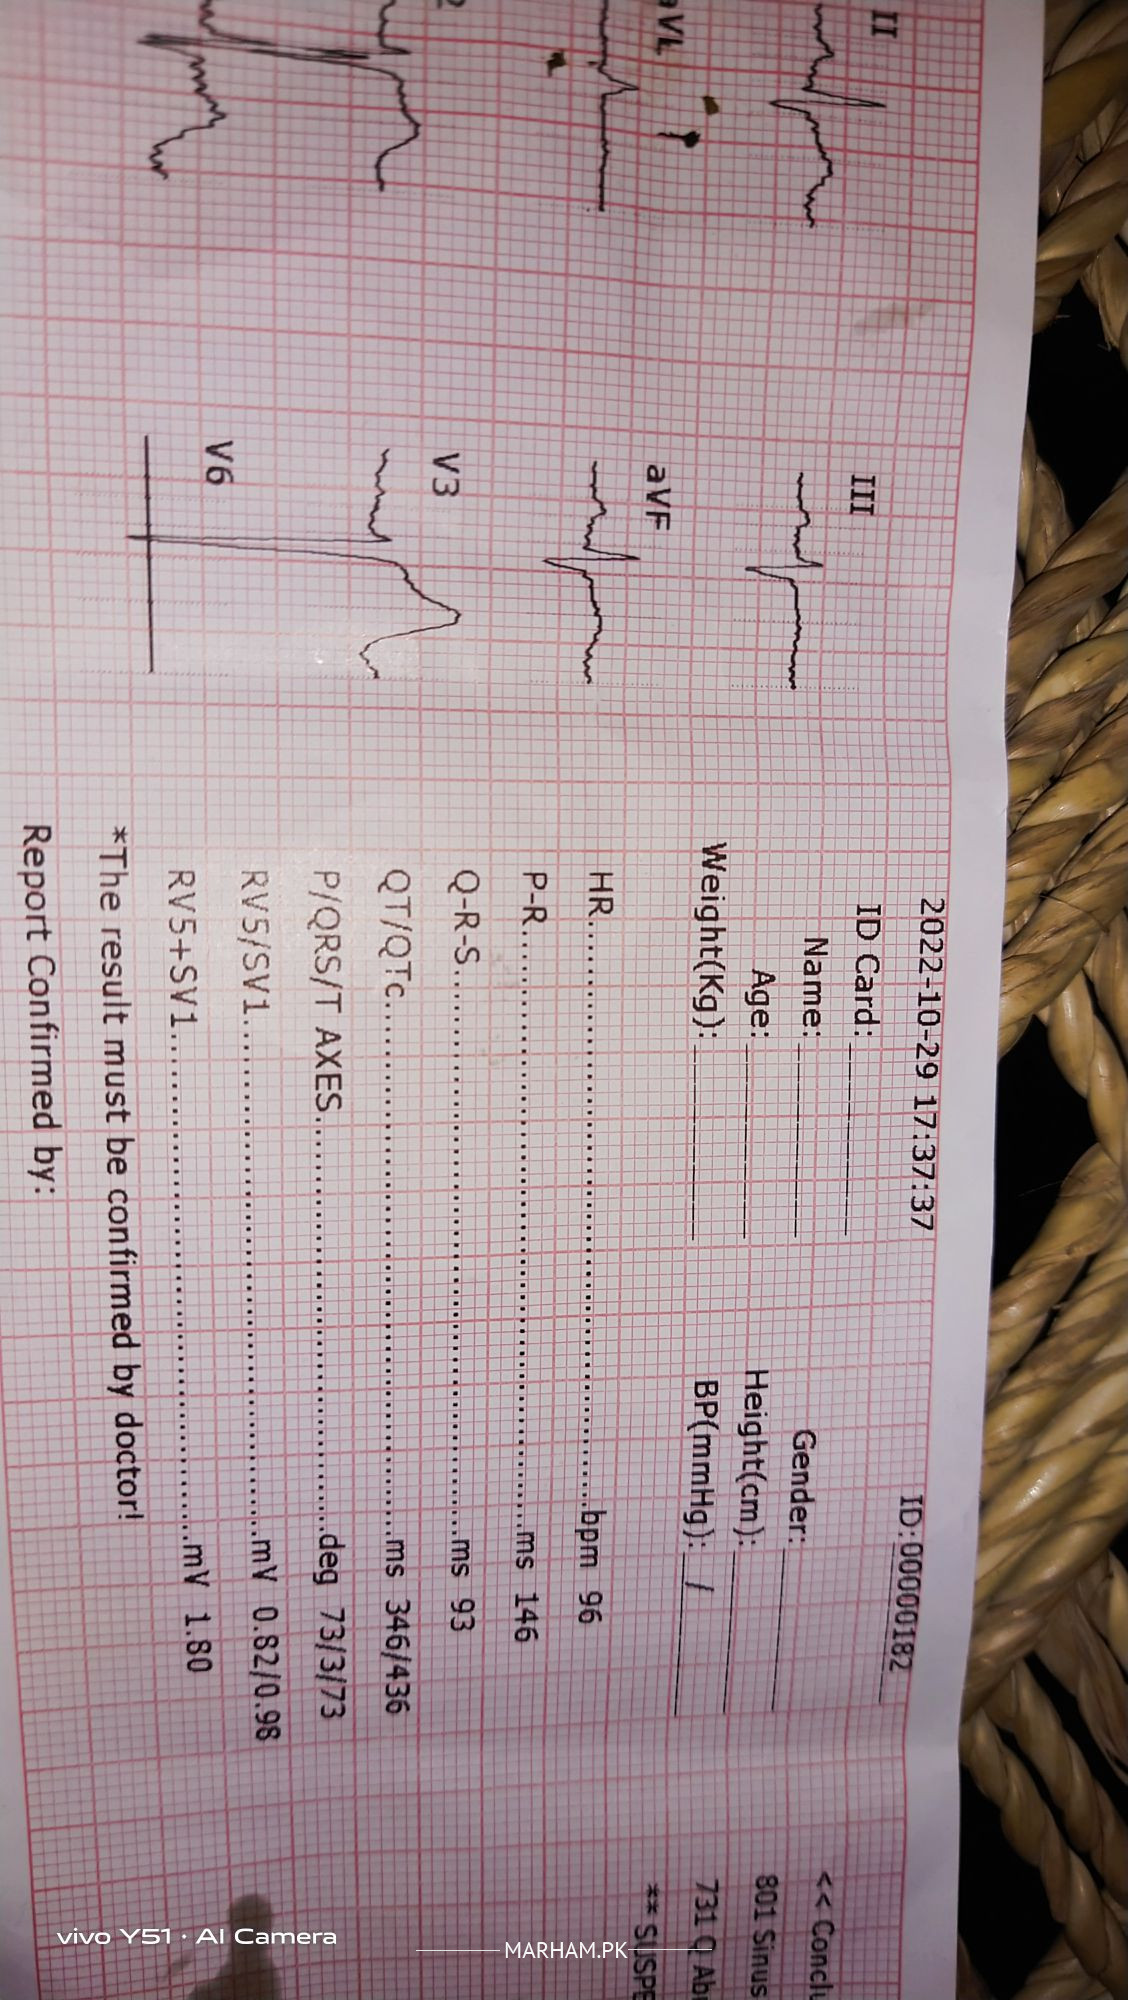 II
aVL
2
III
aVF
V3
V6
2022-10-29 17:37:37
ID:00000182
ID Card:
Name:
Gender:
Age:
Height(cm):
Weight(Kg):
BP(mmHg): /
HR bpm 96
P-R ms 146
Q-R-S ms 93
QT/QTc ms 346/436
P/QRS/T AXES deg 73/3/73
RV5/SV1 mV 0.82/0.98
RV5+SV1 mV 1.80
*The result must be confirmed by doctor!
Report Confirmed by:
<<
801 Sinus
731 Q
**
vivo Y51 · AI Camera
MARHAM.PK